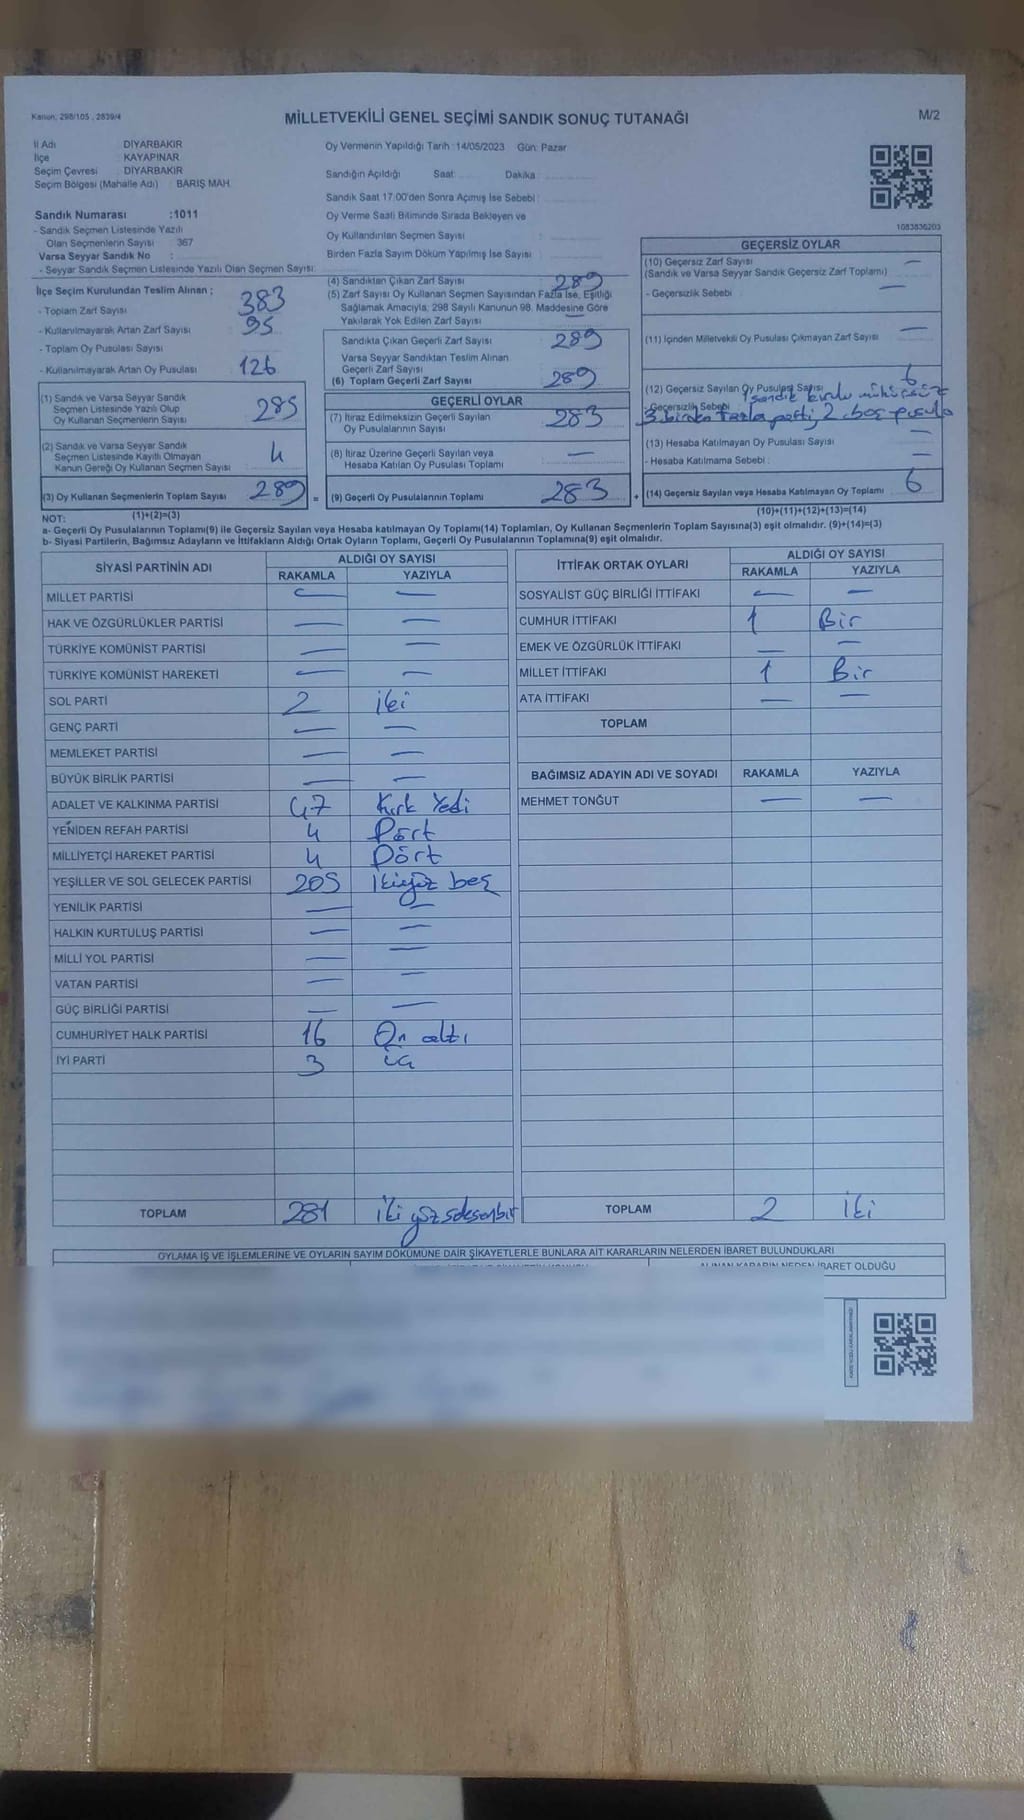 Kanun, 298/105 , 2839/4
MİLLETVEKİLİ GENEL SEÇİMİ SANDIK SONUÇ TUTANAĞI
M/2
İl Adı DİYARBAKIR
İlçe KAYAPINAR
Seçim Çevresi : DİYARBAKIR
Seçim Bölgesi (Mahalle Adı) : BARIŞ MAH.
Oy Vermenin Yapıldığı Tarih :14/05/2023 Gün: Pazar
Sandığın Açıldığı Saat Dakika
Sandık Saat 17:00'den Sonra Açımış İse Sebebi :
Oy Verme Saati Bitiminde Sırada Bekleyen ve
Oy Kullandırılan Seçmen Sayısı :
Birden Fazla Sayım Döküm Yapılmış İse Sayısı :
Sandık Numarası :1011
- Sandık Seçmen Listesinde Yazılı
Olan Seçmenlerin Sayısı : 367
Varsa Seyyar Sandık No :
- Seyyar Sandık Seçmen Listesinde Yazılı Olan Seçmen Sayısı:
1083836203
İlçe Seçim Kurulundan Teslim Alınan ;
- Toplam Zarf Sayısı 383
- Kullanılmayarak Artan Zarf Sayısı 95
- Toplam Oy Pusulası Sayısı
- Kullanılmayarak Artan Oy Pusulası 126
(1) Sandık ve Varsa Seyyar Sandık
Seçmen Listesinde Yazılı Olup
Oy Kullanan Seçmenlerin Sayısı 285
(2) Sandık ve Varsa Seyyar Sandık
Seçmen Listesinde Kayıtlı Olmayan
Kanun Gereği Oy Kullanan Seçmen Sayısı 4
(3) Oy Kullanan Seçmenlerin Toplam Sayısı 289 =
(1)+(2)=(3)
(4) Sandıktan Çıkan Zarf Sayısı 289
(5) Zarf Sayısı Oy Kullanan Seçmen Sayısından Fazla İse, Eşitliği
Sağlamak Amacıyla; 298 Sayılı Kanunun 98. Maddesine Göre
Yakılarak Yok Edilen Zarf Sayısı —
Sandıkta Çıkan Geçerli Zarf Sayısı 289
Varsa Seyyar Sandıktan Teslim Alınan
Geçerli Zarf Sayısı
(6) Toplam Geçerli Zarf Sayısı 289
GEÇERLİ OYLAR
(7) İtiraz Edilmeksizin Geçerli Sayılan
Oy Pusulalarının Sayısı 283
(8) İtiraz Üzerine Geçerli Sayılan veya
Hesaba Katılan Oy Pusulası Toplamı —
(9) Geçerli Oy Pusulalarının Toplamı 283 +
GEÇERSİZ OYLAR
(10) Geçersiz Zarf Sayısı —
(Sandık ve Varsa Seyyar Sandık Geçersiz Zarf Toplamı)
- Geçersizlik Sebebi : —
(11) İçinden Milletvekili Oy Pusulası Çıkmayan Zarf Sayısı —
(12) Geçersiz Sayılan Oy Pusulası Sayısı 6
1 sandık kurulu mühürsüz
- Geçersizlik Sebebi
3 birden fazla parti, 2 boş pusula
(13) Hesaba Katılmayan Oy Pusulası Sayısı —
- Hesaba Katılmama Sebebi : —
(14) Geçersiz Sayılan veya Hesaba Katılmayan Oy Toplamı 6
(10)+(11)+(12)+(13)=(14)
NOT:
a- Geçerli Oy Pusulalarının Toplamı(9) ile Geçersiz Sayılan veya Hesaba katılmayan Oy Toplamı(14) Toplamları, Oy Kullanan Seçmenlerin Toplam Sayısına(3) eşit olmalıdır. (9)+(14)=(3)
b- Siyasi Partilerin, Bağımsız Adayların ve İttifakların Aldığı Ortak Oyların Toplamı, Geçerli Oy Pusulalarının Toplamına(9) eşit olmalıdır.
SİYASİ PARTİNİN ADI ALDIĞI OY SAYISI
RAKAMLA YAZIYLA
MİLLET PARTİSİ — —
HAK VE ÖZGÜRLÜKLER PARTİSİ — —
TÜRKİYE KOMÜNİST PARTİSİ — —
TÜRKİYE KOMÜNİST HAREKETİ — —
SOL PARTİ 2 iki
GENÇ PARTİ — —
MEMLEKET PARTİSİ — —
BÜYÜK BİRLİK PARTİSİ — —
ADALET VE KALKINMA PARTİSİ 47 Kırk Yedi
YENİDEN REFAH PARTİSİ 4 Dört
MİLLİYETÇİ HAREKET PARTİSİ 4 Dört
YEŞİLLER VE SOL GELECEK PARTİSİ 205 İkiyüz beş
YENİLİK PARTİSİ — —
HALKIN KURTULUŞ PARTİSİ — —
MİLLİ YOL PARTİSİ — —
VATAN PARTİSİ — —
GÜÇ BİRLİĞİ PARTİSİ — —
CUMHURİYET HALK PARTİSİ 16 On altı
İYİ PARTİ 3 üç
TOPLAM 281 iki yüz seksen bir
İTTİFAK ORTAK OYLARI ALDIĞI OY SAYISI
RAKAMLA YAZIYLA
SOSYALİST GÜÇ BİRLİĞİ İTTİFAKI — —
CUMHUR İTTİFAKI 1 Bir
EMEK VE ÖZGÜRLÜK İTTİFAKI — —
MİLLET İTTİFAKI 1 Bir
ATA İTTİFAKI — —
TOPLAM
BAĞIMSIZ ADAYIN ADI VE SOYADI RAKAMLA YAZIYLA
MEHMET TONĞUT — —
TOPLAM 2 iki
OYLAMA İŞ VE İŞLEMLERİNE VE OYLARIN SAYIM DÖKÜMÜNE DAİR ŞİKAYETLERLE BUNLARA AİT KARARLARIN NELERDEN İBARET BULUNDUKLARI
ALINAN KARARIN NEDEN İBARET OLDUĞU